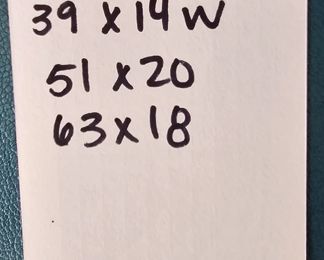 39 x 14 W
51 x 20
63 x 18